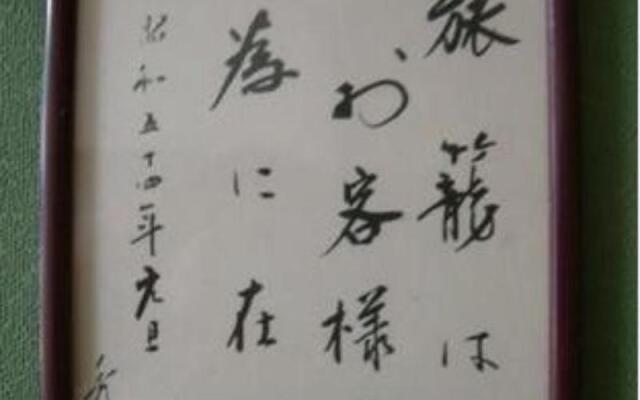 旅籠は
お客様
為に在
昭和五十四年元旦